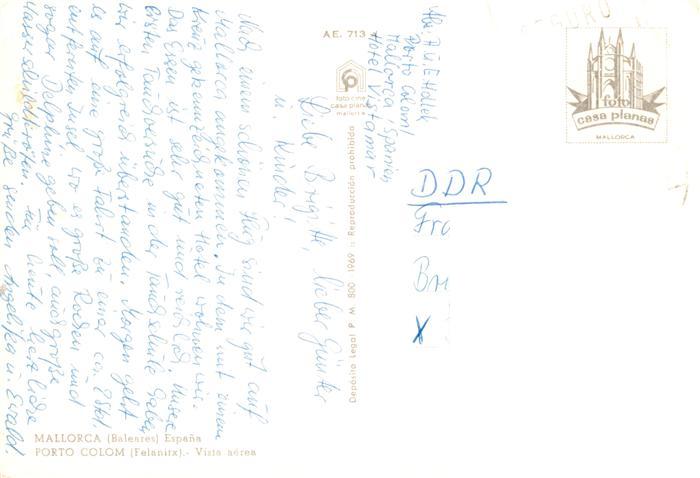 AE. 713
foto cine
casa planas
mallorca
foto
casa planas
MALLORCA
Abs. A. u. E. Hallek
Porto Colom
Mallorca / Spanien
Hotel Vistamar
DDR
Fra
Br
X
Liebe Brigitte, lieber Günter
u. Kinder!
Nach einem schönen Flug sind wir gut auf
Mallorca angekommen. In dem mit einem
Kreuz gekennzeichneten Hotel wohnen wir.
Das Essen ist sehr gut und reichlich. Unsere
ersten Tauchversuche in der Tauchschule haben
wir erfolgreich überstanden. Morgen geht
es auf eine große Fahrt zu einer ca. 8 Std.
entfernten Insel, wo es große Rochen und
sogar Delphine geben soll, auch große
Wasserschildkröten. Für heute herzliche
Grüße senden Angelika u. Ewald.
Depósito Legal P M 800 1969 :: Reproducción prohibida
MALLORCA (Baleares) España
PORTO COLOM (Felanitx).- Vista aérea